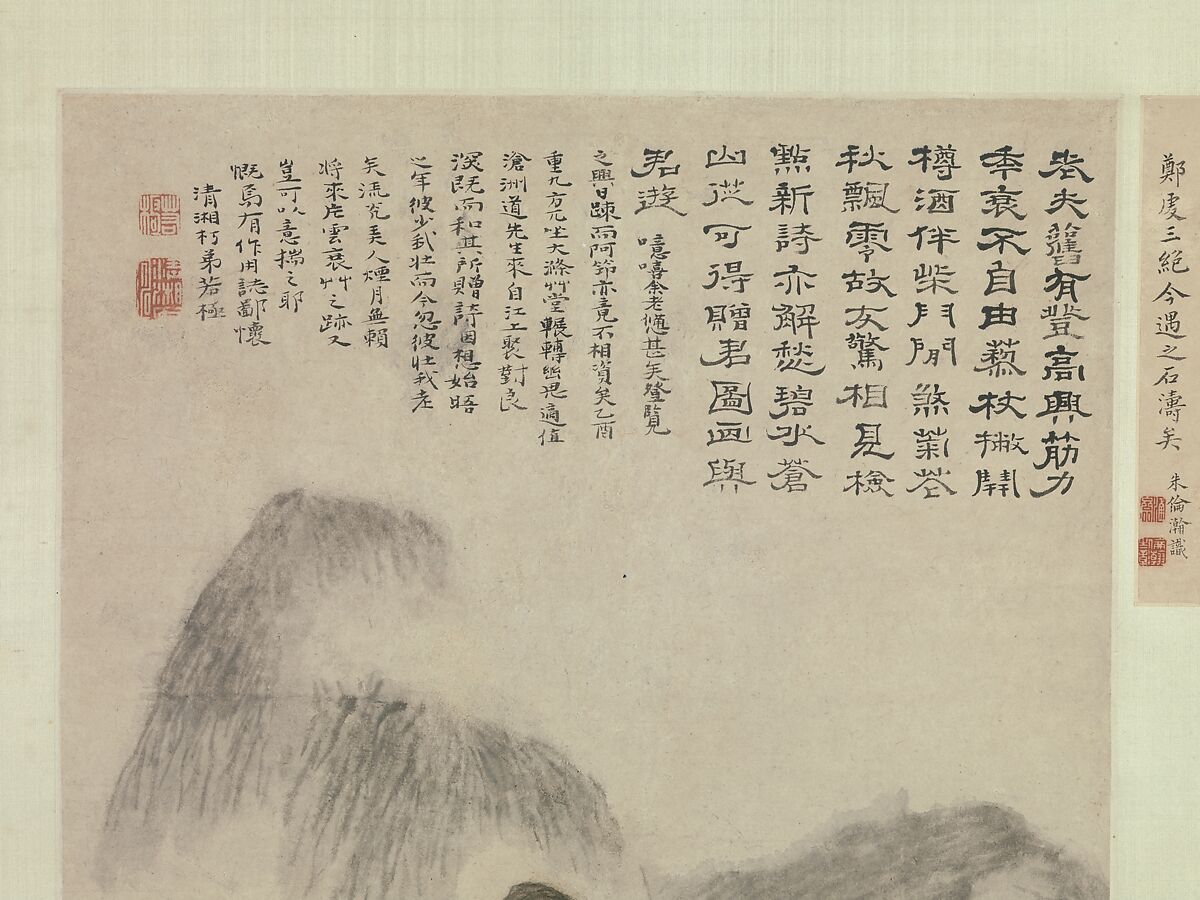 鄭虔三絕今遇之石濤矣
朱倫瀚識
老夫舊有登高興筋力
年衰不自由藜杖撇開
樽酒伴柴門閒煞菊花
秋飄零故友驚相見檢
點新詩亦解愁碧水蒼
山從可得贈君圖畫與
君遊
噫嘻余老憊甚矣登覽
之興日疎而阿筇亦竟不相資矣乙酉
重九方兀坐大滌艸堂輾轉幽思適值
滄洲道先生來自江上聚對良
深既而和其所贈詩因想始晤
之年彼少我壯而今忽彼壯我老
矣流光美人煙月無賴
將來片雲衰艸之跡又
豈可以意揣之耶
慨焉有作用誌鄙懷
清湘朽弟若極